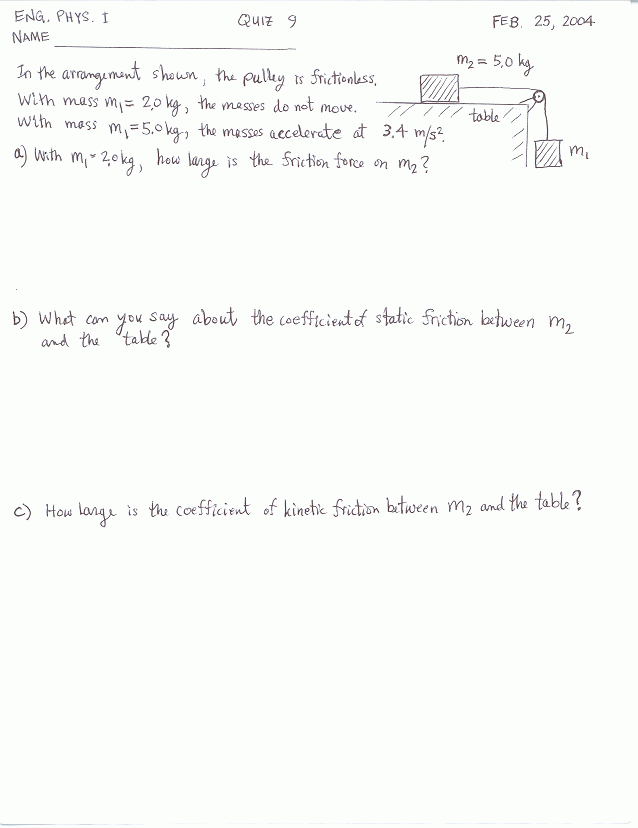 ENG. PHYS. I QUIZ 9 FEB. 25, 2004
NAME
m2 = 5.0 kg
In the arrangement shown, the pulley is frictionless.
With mass m1 = 2.0 kg, the masses do not move.
With mass m1 = 5.0 kg, the masses accelerate at 3.4 m/s².
table
m1
a) With m1 = 2.0 kg, how large is the friction force on m2?
b) What can you say about the coefficient of static friction between m2
and the table?
c) How large is the coefficient of kinetic friction between m2 and the table?